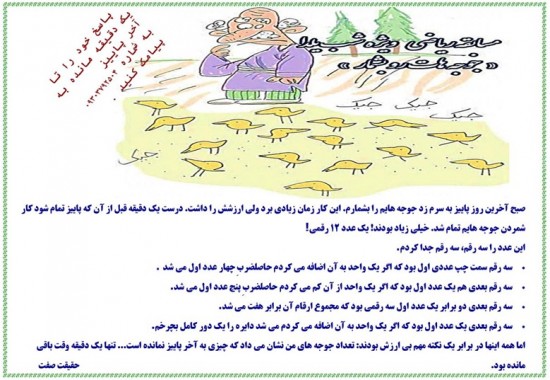 مسابقه ریاضی ویژه شب یلدا
« جوجه هات رو بشمار »
پاسخ خود را تا
یک دقیقه مانده به
آخر پاییز
به شماره
پیامک کنید
جیک
جیک
جیک
جیک
صبح آخرین روز پاییز به سرم زد جوجه هایم را بشمارم. این کار زمان زیادی برد ولی ارزشش را داشت. درست یک دقیقه قبل از آن که پاییز تمام شود کار
شمردن جوجه هایم تمام شد. خیلی زیاد بودند! یک عدد ۱۲ رقمی!
این عدد را سه رقم، سه رقم جدا کردم.
• سه رقم سمت چپ عددی اول بود که اگر یک واحد به آن اضافه می کردم حاصلضرب چهار عدد اول می شد .
• سه رقم بعدی هم یک عدد اول بود که اگر یک واحد از آن کم می کردم حاصلضرب پنج عدد اول می شد.
• سه رقم بعدی دو برابر یک عدد اول سه رقمی بود که مجموع ارقام آن برابر هفت می شد.
• سه رقم بعدی یک عدد اول بود که اگر یک واحد به آن اضافه می کردم می شد دایره را یک دور کامل بچرخم.
اما همه اینها در برابر یک نکته مهم بی ارزش بودند: تعداد جوجه های من نشان می داد که چیزی به آخر پاییز نمانده است... تنها یک دقیقه وقت باقی
مانده بود.
حقیقت صفت